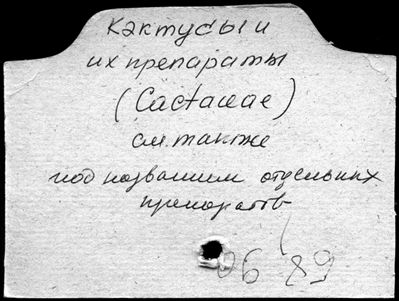 Кактусы и
их препараты
(Cactaceae)
см. также
под названием отдельных
препаратов